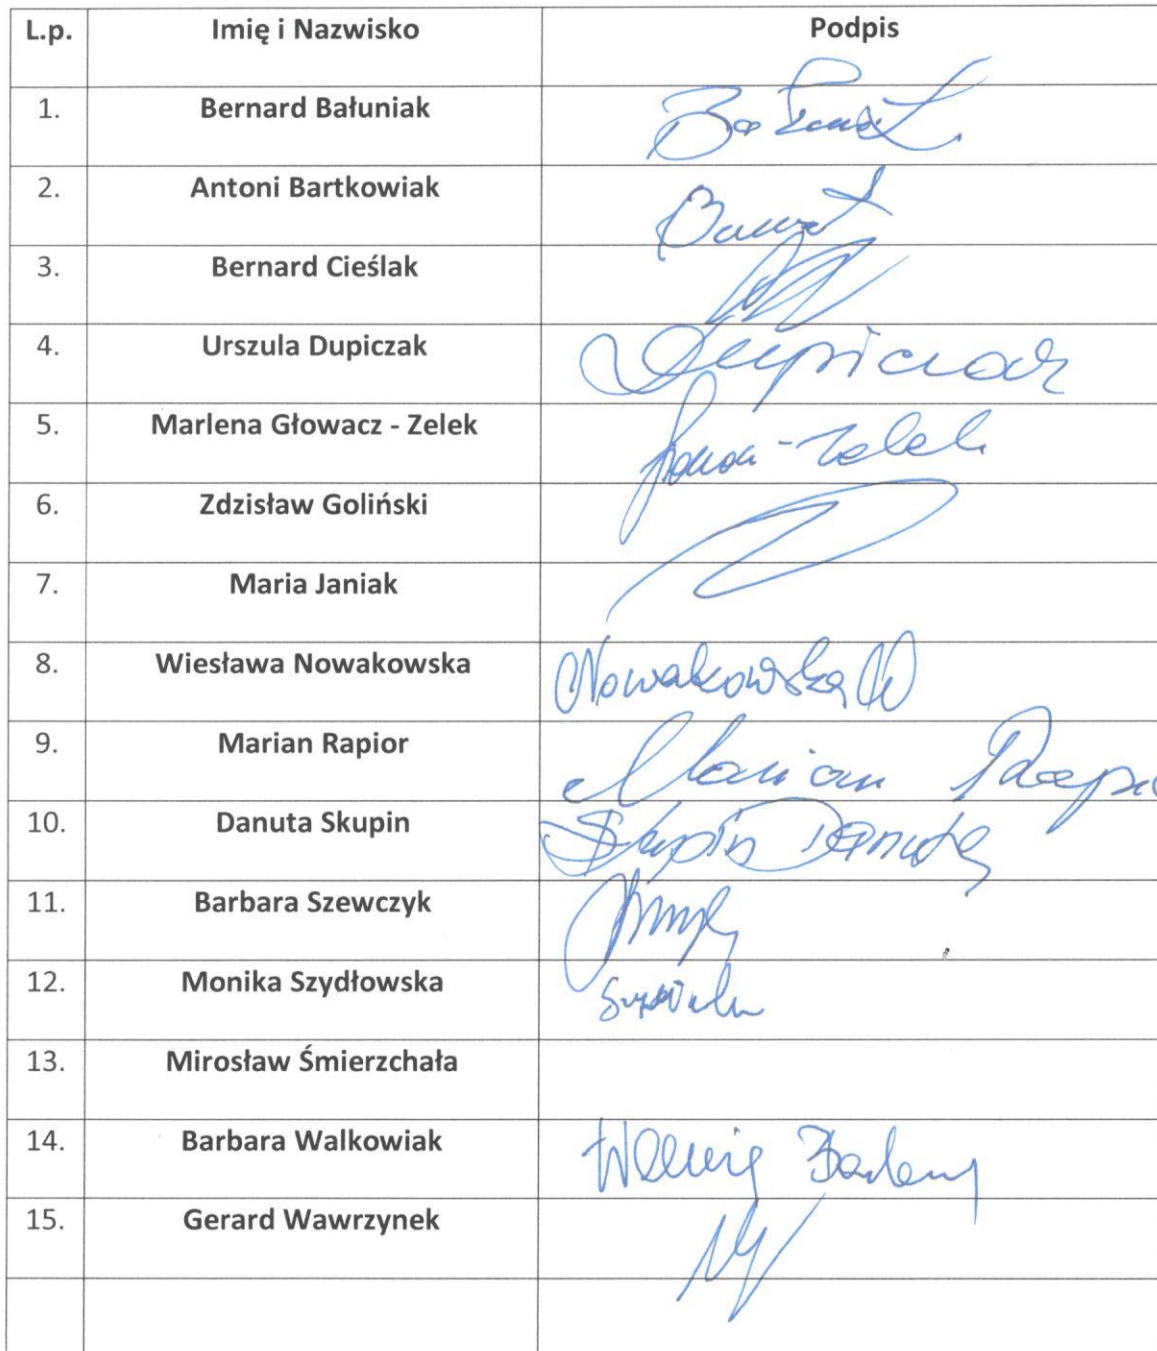 L.p. Imię i Nazwisko Podpis
1. Bernard Bałuniak
2. Antoni Bartkowiak
3. Bernard Cieślak
4. Urszula Dupiczak Dupiczak
5. Marlena Głowacz - Zelek
6. Zdzisław Goliński
7. Maria Janiak
8. Wiesława Nowakowska Nowakowska W
9. Marian Rapior Marian Rapio
10. Danuta Skupin Skupin Danuta
11. Barbara Szewczyk
12. Monika Szydłowska
13. Mirosław Śmierzchała
14. Barbara Walkowiak
15. Gerard Wawrzynek